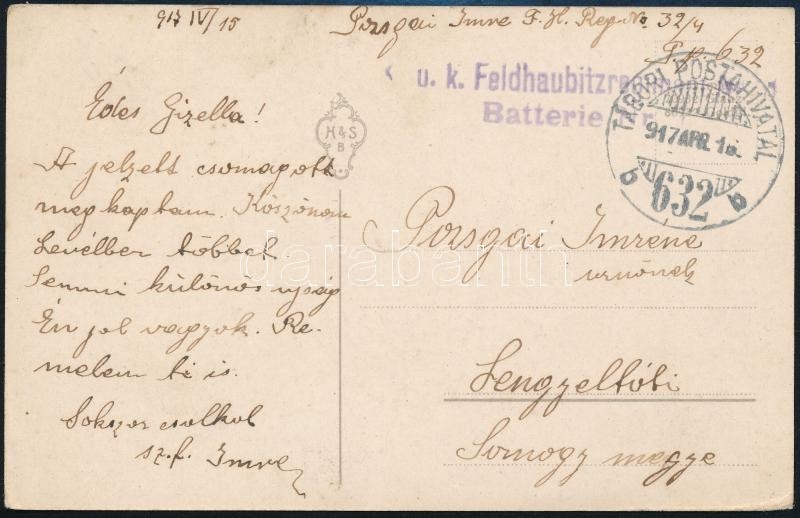 917 IV/15
Pozsgai Imre F. H. Reg. No. 32/4
F. p. 632
u. k. Feldhaubitzre
Batterie Nr.
TÁBORI POSTAHIVATAL
917 APR. 16.
b 632 b
H&S
B
Édes Gizella!
A jelzett csomagott
megkaptam. Köszönöm
Levélben többet.
Semmi különös ujság
Én jol vagyok. Re-
melem ti is.
Sokszor csolkol
sz. f. Imre
Pozsgai Imrene
urnönek
Lengyeltóti
Somogy megye
darabanth